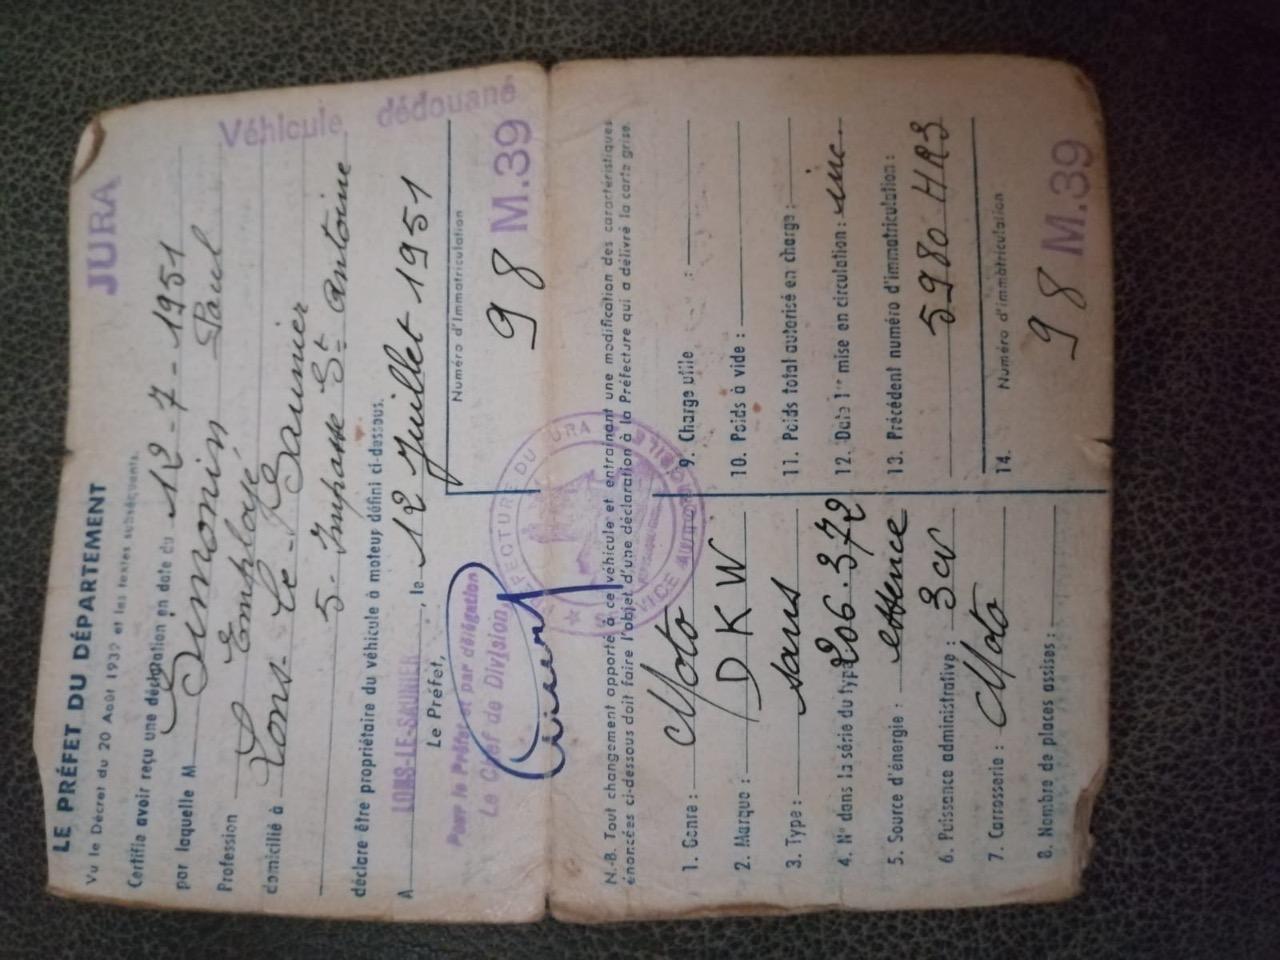 JURA
LE PRÉFET DU DÉPARTEMENT
Vu le Décret du 20 Août 1939 et les textes subséquents,
Certifie avoir reçu une déclaration en date du 12-7-1951
par laquelle M Simonin Paul
Profession Employé
Véhicule dédouané
domicilié à Lons-le-Saunier
5-Impasse St Antoine
déclare être propriétaire du véhicule à moteur défini ci-dessous.
A LONS-LE-SAUNIER, le 12 Juillet 1951
Le Préfet,
Pour le Préfet et par délégation
Le Chef de Division,
Numéro d'Immatriculation
98 M.39
PRÉFECTURE DU JURA
SERVICE AUTOMOBILE
N.-B. Tout changement apporté à ce véhicule et entraînant une modification des caractéristiques
énoncées ci-dessous doit faire l'objet d'une déclaration à la Préfecture qui a délivré la carte grise.
1. Genre : Moto
2. Marque : DKW
3. Type : sans
4. N° dans la série du type 206.372
5. Source d'énergie : essence
6. Puissance administrative : 3 cv
7. Carrosserie : Moto
8. Nombre de places assises :
9. Charge utile :
10. Poids à vide :
11. Poids total autorisé en charge :
12. Date 1re mise en circulation : inc
13. Précédent numéro d'immatriculation :
5980 HR3
14. Numéro d'immatriculation
98 M.39